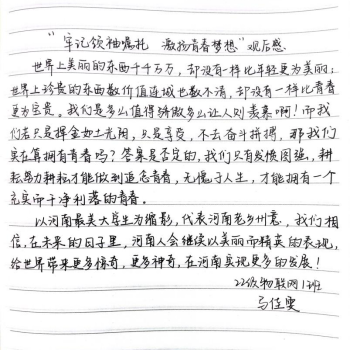 “牢记领袖嘱托 激扬青春梦想”观后感
世界上美丽的东西千千万万，却没有一样比年轻更为美丽；
世界上珍贵的东西数也数不清，却没有一样比青春
更为宝贵。我们是多么值得骄傲多么让人羡慕啊！而我
们若只是挥金如土光阴，只是享受，不去奋斗拼搏，那我们
实在算拥有青春吗？答案是否定的，我们只有发愤图强，耕
耘努力耕耘才能做到追忆青春，无愧于人生，才能拥有一个
充实而干净利落的青春。
以河南最美大学生为缩影，代表河南，我们相
信，在未来的日子里，河南人会继续以美丽而精英的表现，
给世界带来更多惊奇，更多神奇，在河南实现更多的发展！
22级物联网1班
马佳雯